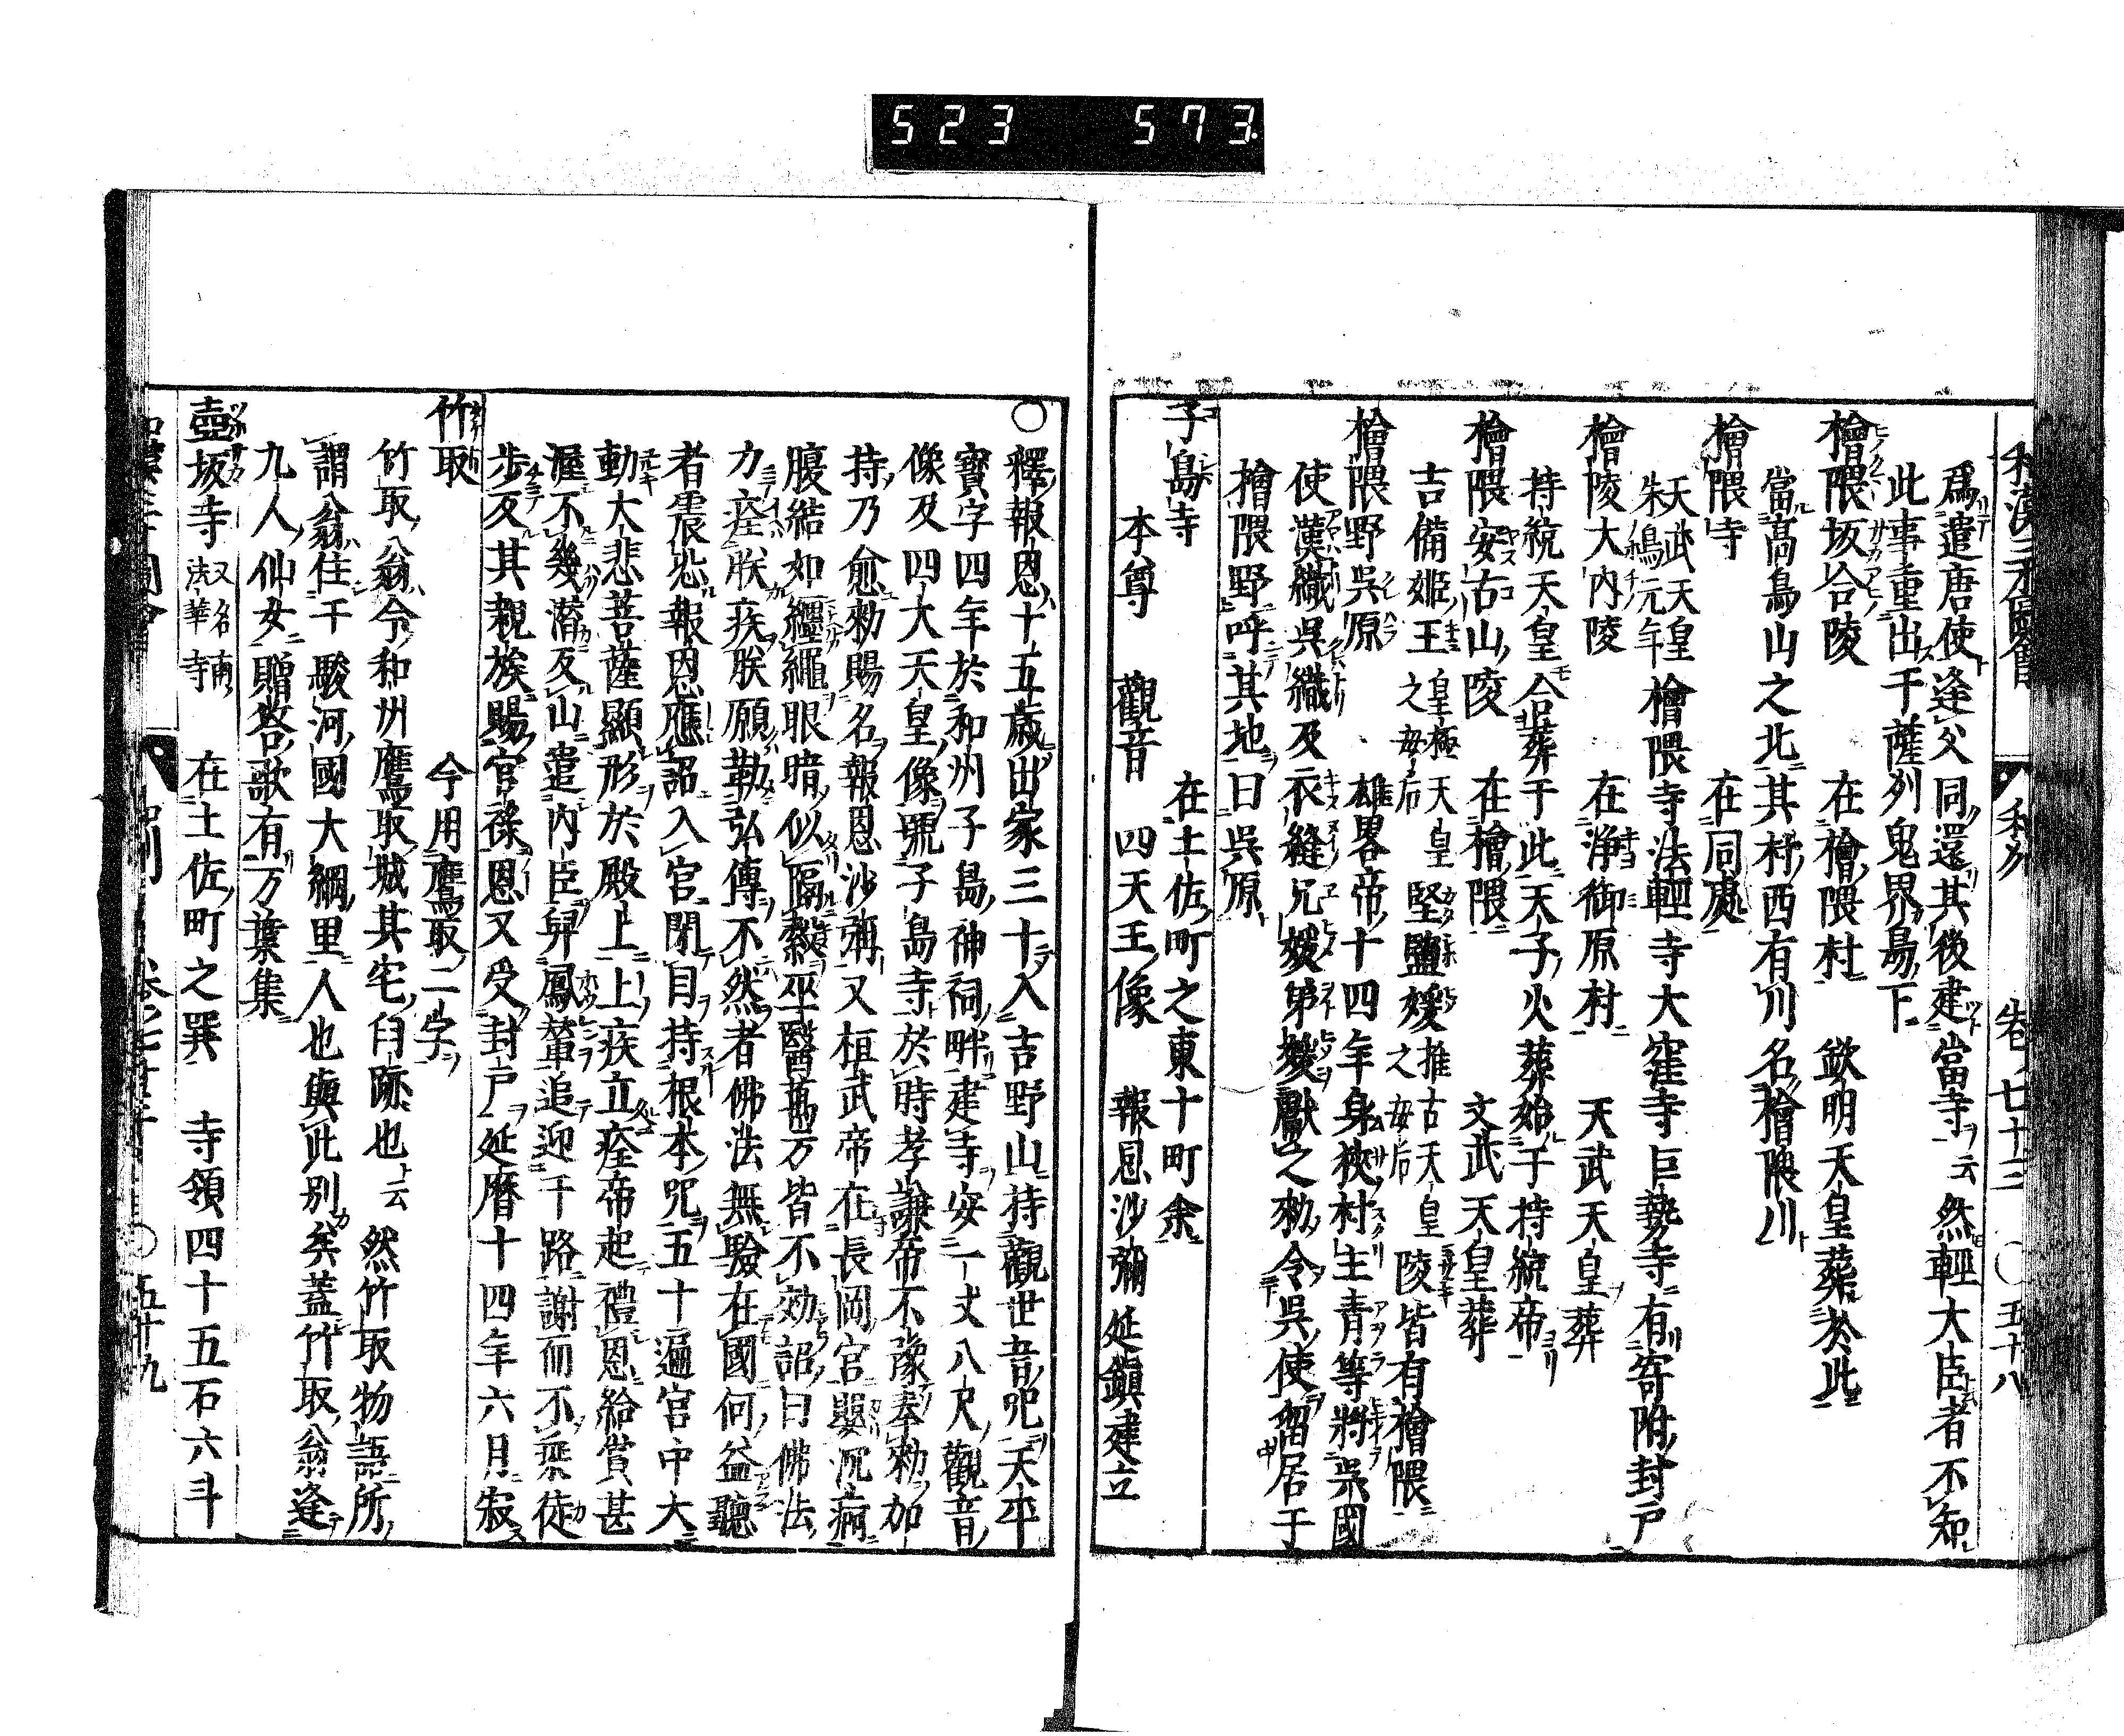 523 573
和漢三才圖會 和州 卷ノ七十三 〇五十八
爲遣唐使逢父同還其後建當寺云然輕大臣者不知
此事重出于薩列鬼界島下
檜隈坂合陵 在檜隈村 欽明天皇葬於此
當高鳥山之北其村西有川名檜隈川
檜隈寺 在同處
天武天皇朱鳥元年檜隈寺法輕寺大窪寺巨勢寺有寄附封戸
檜陵大内陵 在浄御原村 天武天皇葬
持統天皇合葬于此天子火葬始于持統帝
檜隈安古山陵 在檜隈 文武天皇葬
吉備姫王皇極天皇之母后堅鹽媛推古天皇之母后陵皆有檜隈
檜隈野呉原 雄畧帝十四年身狹村主青等將呉國
使漢織呉織及衣縫兄媛弟媛獻之勅令呉使畱居于
檜隈野呼其地曰呉原
子島寺 在土佐町之東十町余
本尊 觀音 四天王像 報恩沙彌延鎭建立
〇釋報恩十五歳出家三十入吉野山持觀世音呪天平
寳字四年於和州子島神祠畔建寺安一丈八尺觀音
像及四大天皇像號子島寺於時孝謙帝不豫奉勅加
持乃愈勅賜名報恩沙彌又桓武帝在長岡宮嬰沉痾
腹結如纒繩眼暗似隔縠巫醫萬方皆不効詔曰佛法
力痊朕疾朕願勒弘傳不然者佛法無驗在國何益聽
者震恐報恩應詔入官閉目持根本咒五十遍宮中大
動大悲菩薩顯形於殿上上疾立痊帝起禮恩給賞甚
渥不幾潜反山遣内臣舁鳳輦追迎于路謝而不乗徒
歩反其親族賜官祿恩又受封戸延暦十四年六月寂
竹取 今用鷹取二字
竹取翁令和州鷹取城其宅臼跡也云然竹取物語所
謂翁住于駿河國大綱里人也與此別矣蓋竹取翁逢
九人仙女贈答歌有万葉集
壺坂寺又名南法華寺 在土佐町之巽 寺領四十五石六斗
〇五十九